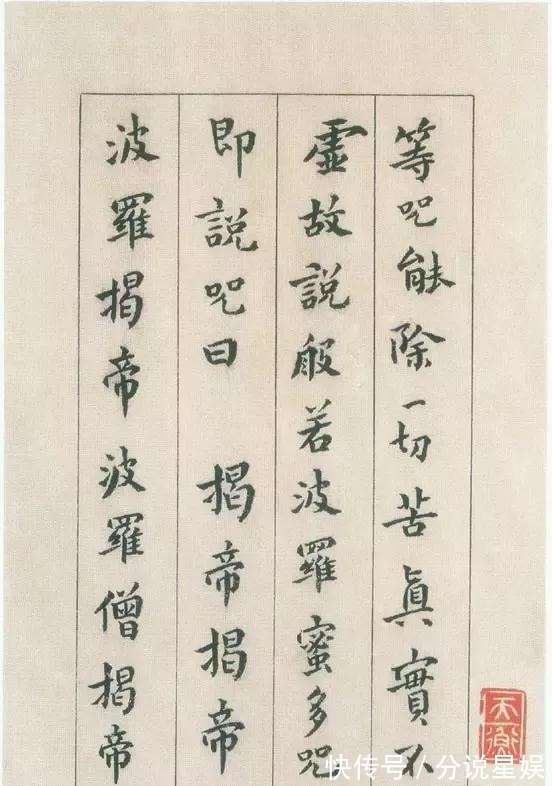 等咒能除一切苦真實不
虛故說般若波羅蜜多咒
即說咒曰 揭帝揭帝
波羅揭帝波羅僧揭帝
快传号／分说星娱